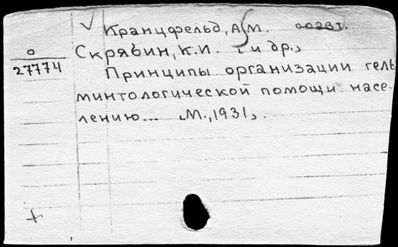 Кранцфельд, А.М. соавт.
О
27774
Скрябин, К.И. и др.,
Принципы организации гель
минтологической помощи насе-
лению... М., 1931,.